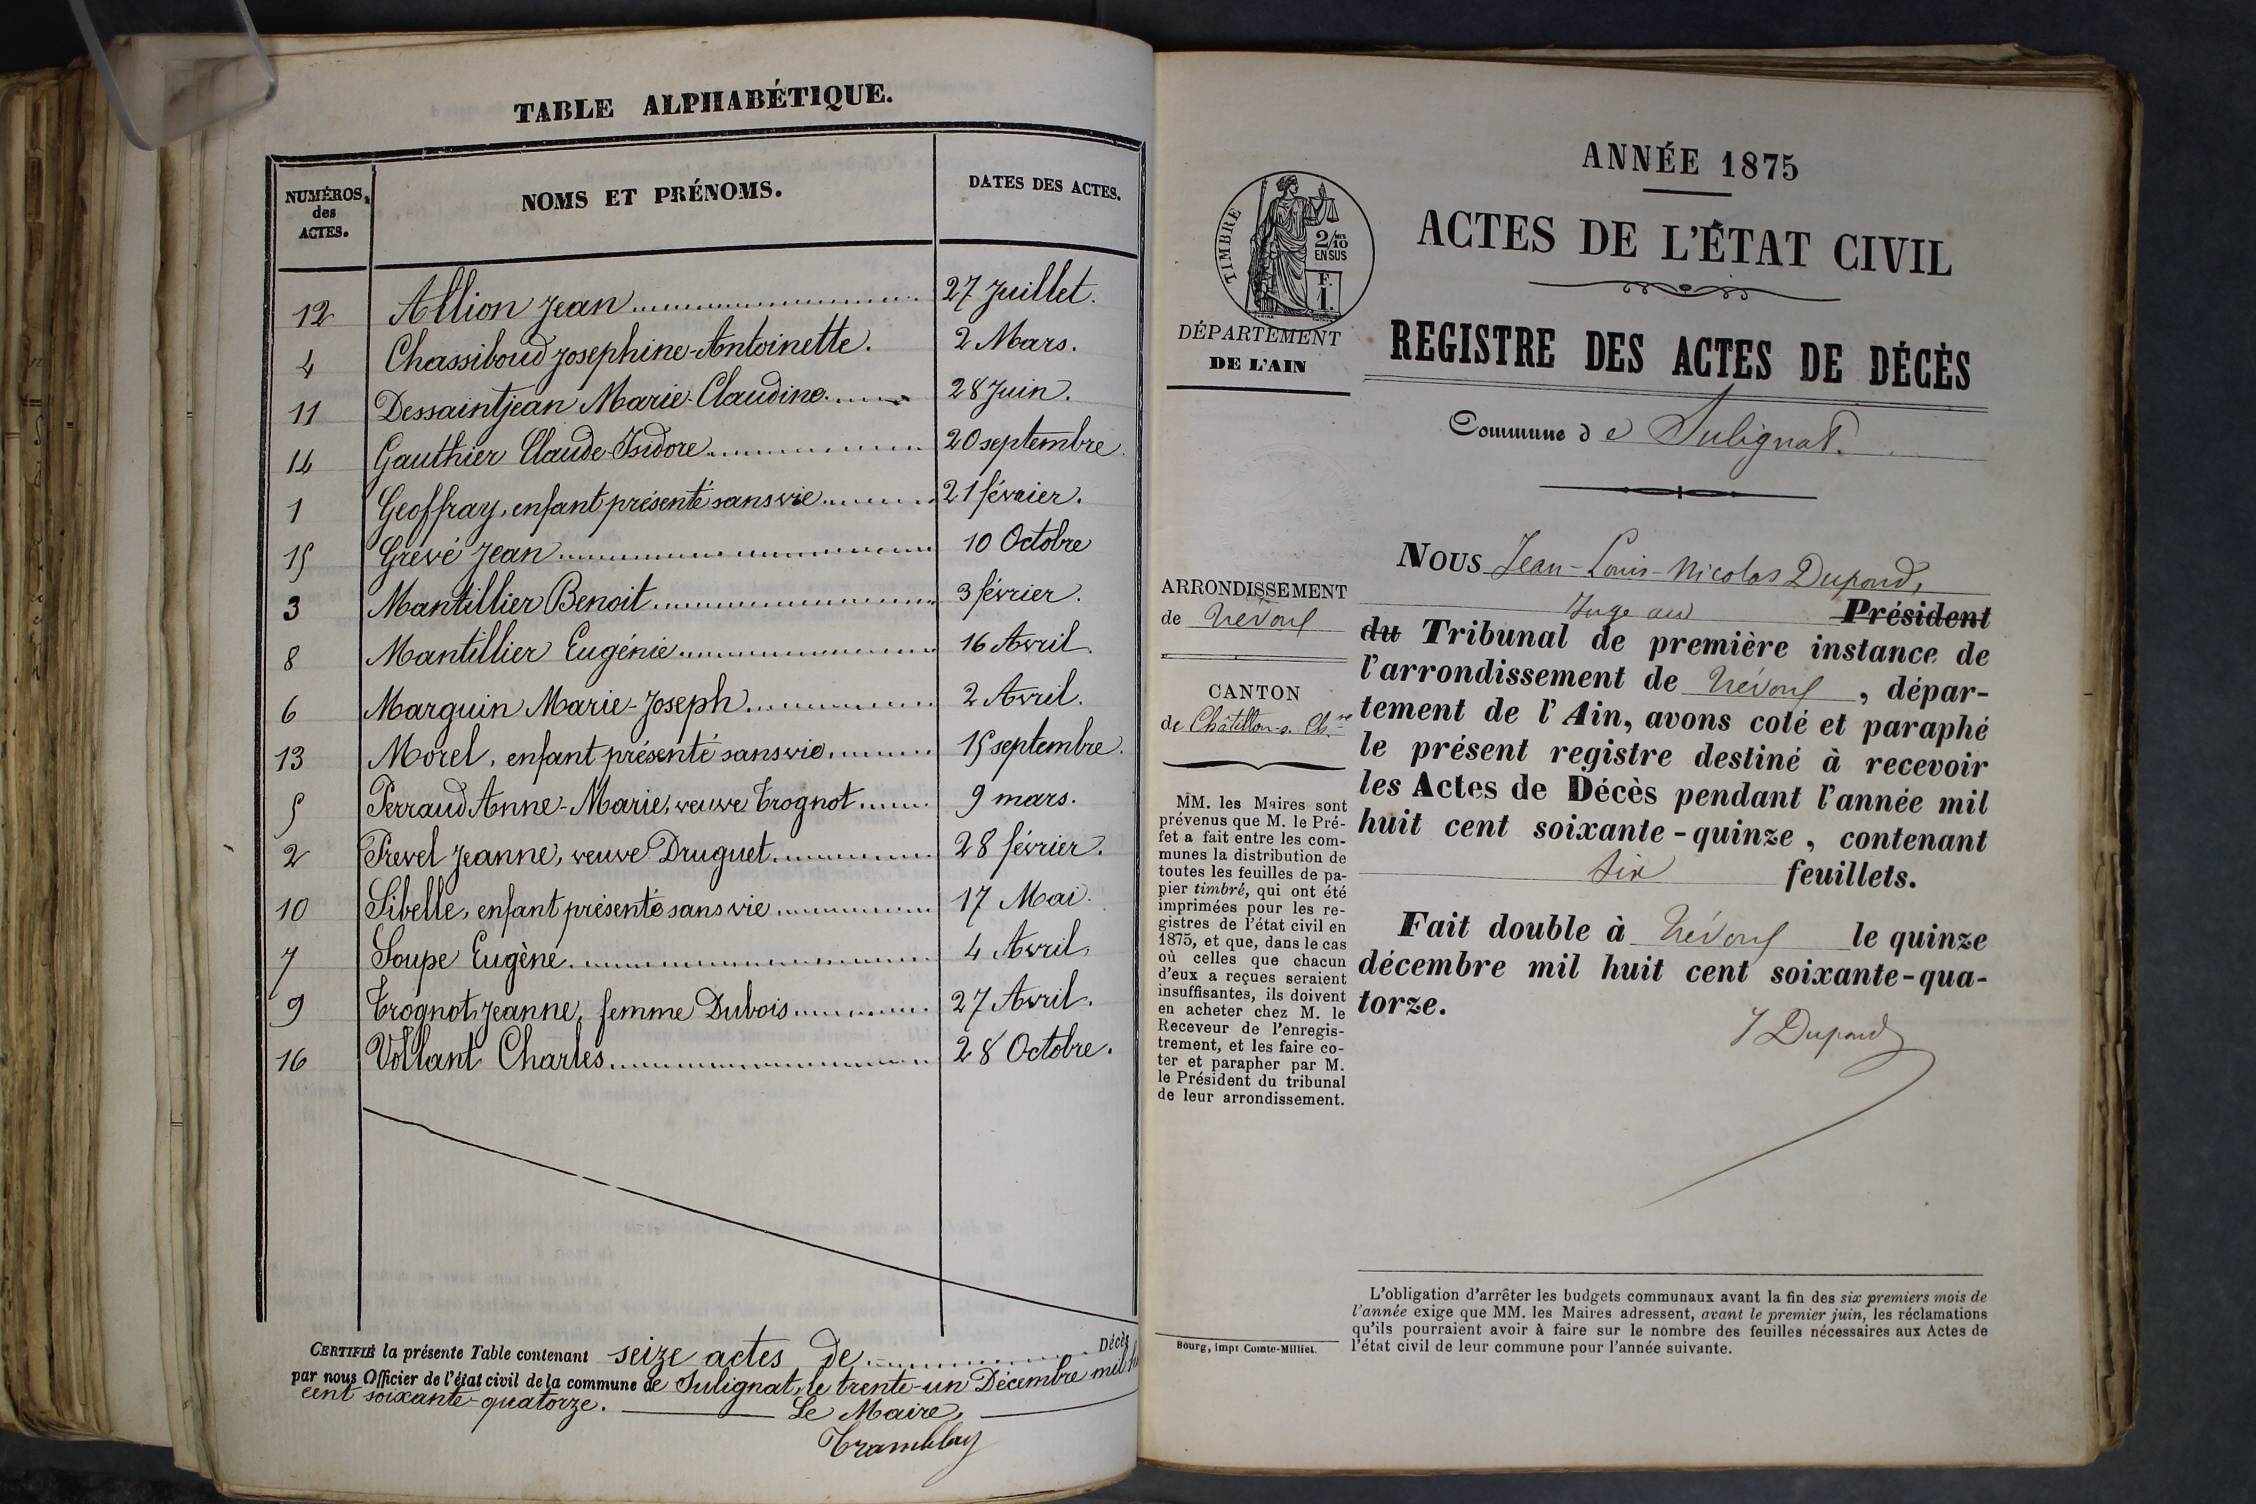 TABLE ALPHABÉTIQUE.
NUMÉROS des ACTES. NOMS ET PRÉNOMS. DATES DES ACTES.
12 Allion Jean 27 Juillet.
4 Chassiboud Josephine-Antoinette. 2 Mars.
11 Dessaintjean Marie-Claudine 28 Juin.
14 Gauthier Claude-Isidore 20 septembre.
1 Geoffray, enfant présenté sans vie 21 février.
15 Grévé Jean 10 Octobre
3 Mantillier Benoit 3 février.
8 Mantillier Eugénie 16 Avril.
6 Marguin Marie-Joseph 2 Avril.
13 Morel, enfant présenté sans vie 15 septembre.
5 Perraud Anne-Marie, veuve Trognot 9 mars.
2 Prevel Jeanne, veuve Druguet 28 février.
10 Sibelle, enfant présenté sans vie 17 Mai.
7 Soupe Eugène 4 Avril.
9 Trognot Jeanne, femme Dubois 27 Avril.
16 Vollant Charles 28 Octobre.
CERTIFIÉ la présente Table contenant seize actes de Décès
par nous Officier de l'état civil de la commune de Sulignat, le trente-un Décembre mil
cent soixante-quatorze. Le Maire,
Tramblay
ANNÉE 1875
TIMBRE
2/10
EN SUS
F.
1.
ACTES DE L'ÉTAT CIVIL
DÉPARTEMENT
DE L'AIN
REGISTRE DES ACTES DE DÉCÈS
Commune de Sulignat.
ARRONDISSEMENT
de Trévoux
CANTON
de Châtillon-s. Ch.ne
MM. les Maires sont
prévenus que M. le Pré-
fet a fait entre les com-
munes la distribution de
toutes les feuilles de pa-
pier timbré, qui ont été
imprimées pour les re-
gistres de l'état civil en
1875, et que, dans le cas
où celles que chacun
d'eux a reçues seraient
insuffisantes, ils doivent
en acheter chez M. le
Receveur de l'enregis-
trement, et les faire co-
ter et parapher par M.
le Président du tribunal
de leur arrondissement.
Bourg, impr Comte-Milliet.
NOUS Jean-Louis-Nicolas Dupond,
Juge au Président
du Tribunal de première instance de
l'arrondissement de Trévoux, dépar-
tement de l'Ain, avons coté et paraphé
le présent registre destiné à recevoir
les Actes de Décès pendant l'année mil
huit cent soixante-quinze, contenant
six feuillets.
Fait double à Trévoux le quinze
décembre mil huit cent soixante-qua-
torze.
J Dupond
L'obligation d'arrêter les budgets communaux avant la fin des six premiers mois de
l'année exige que MM. les Maires adressent, avant le premier juin, les réclamations
qu'ils pourraient avoir à faire sur le nombre des feuilles nécessaires aux Actes de
l'état civil de leur commune pour l'année suivante.